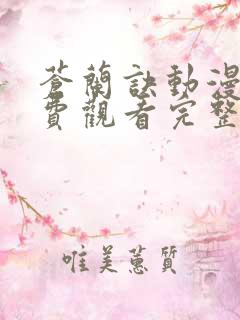 蒼蘭訣動漫
費觀看完整
唯美蕙質